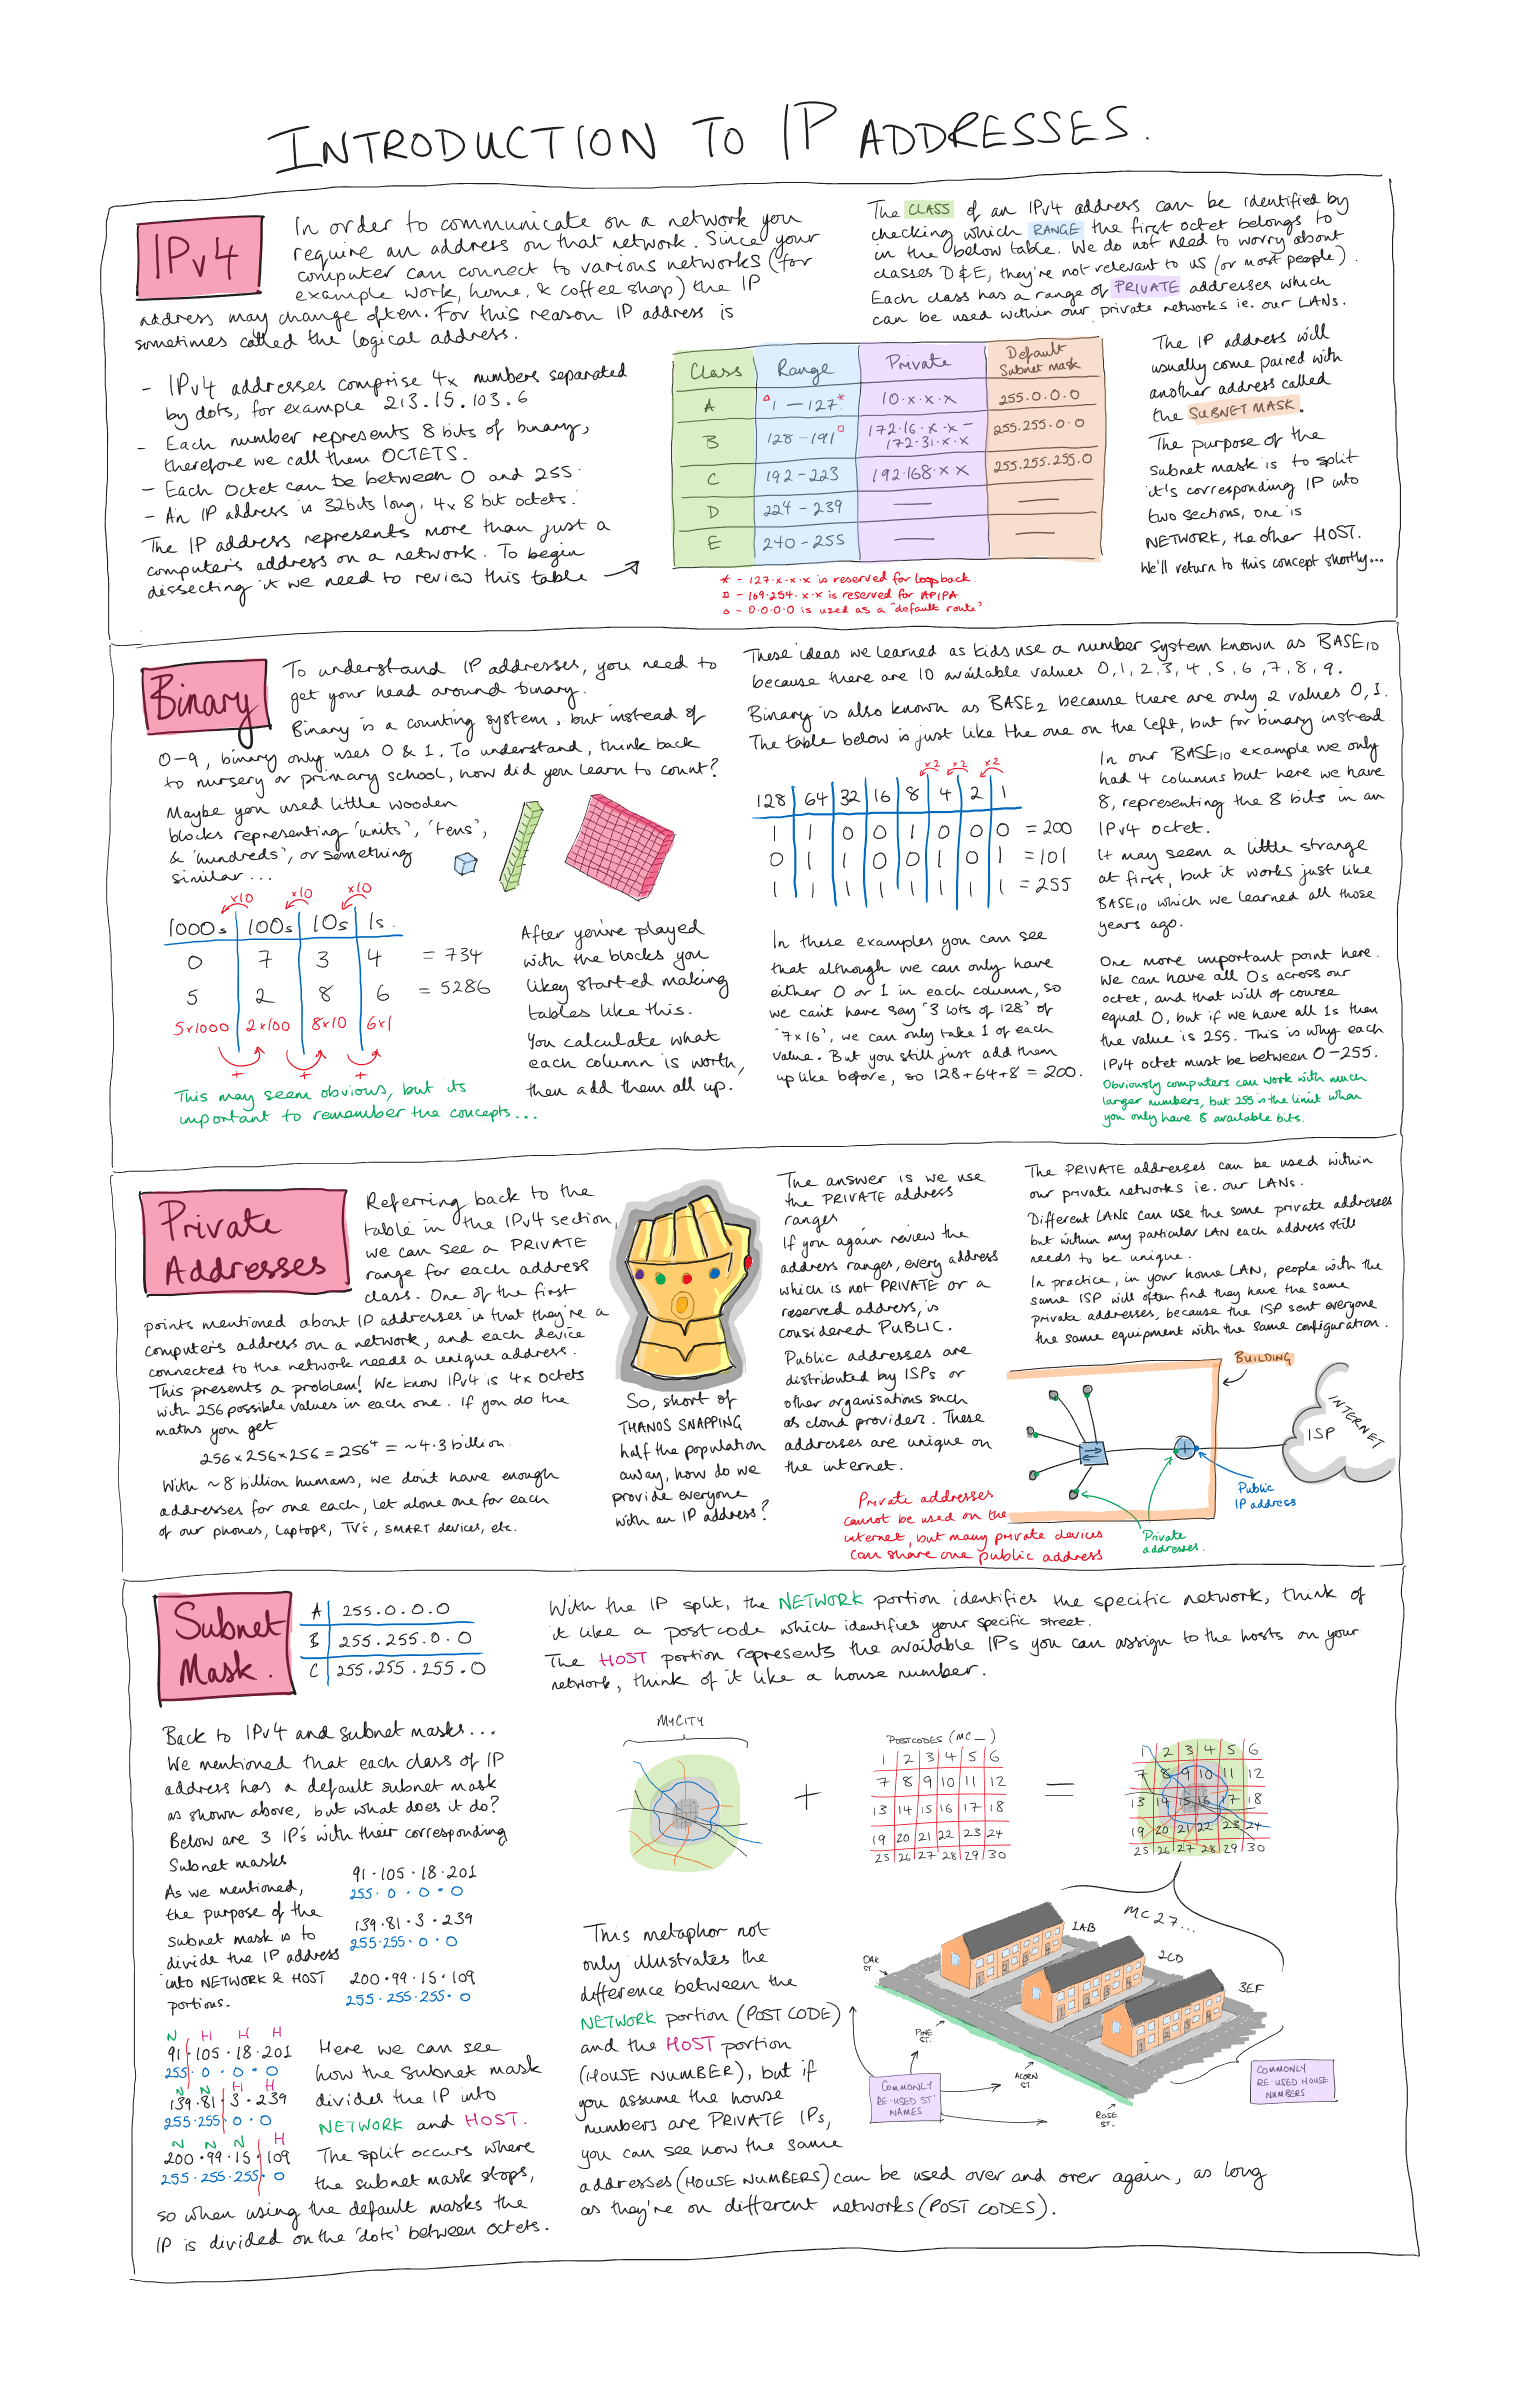 INTRODUCTION TO IP ADDRESSES.
IPv4
In order to communicate on a network you
require an address on that network. Since your
computer can connect to various networks (for
example work, home, & coffee shop) the IP
address may change often. For this reason IP address is
sometimes called the logical address.
- IPv4 addresses comprise 4x numbers separated
by dots, for example 213.15.103.6
- Each number represents 8 bits of binary,
therefore we call them OCTETS.
- Each Octet can be between 0 and 255.
- An IP address is 32bits long, 4x 8 bit octets.
The IP address represents more than just a
computer's address on a network. To begin
dissecting it we need to review this table
The CLASS of an IPv4 address can be identified by
checking which RANGE the first octet belongs to
in the below table. We do not need to worry about
classes D & E, they're not relevant to us (or most people).
Each class has a range of PRIVATE addresses which
can be used within our private networks ie. our LANs.
Class Range Private Default Subnet Mask
A △1 – 127* 10.x.x.x 255.0.0.0
B 128 – 191□ 172.16.x.x – 172.31.x.x 255.255.0.0
C 192 – 223 192.168.x.x 255.255.255.0
D 224 – 239 — —
E 240 – 255 — —
* – 127.x.x.x is reserved for loopback
□ – 169.254.x.x is reserved for APIPA
△ – 0.0.0.0 is used as a 'default route'
The IP address will
usually come paired with
another address called
the SUBNET MASK.
The purpose of the
subnet mask is to split
it's corresponding IP into
two sections, one is
NETWORK, the other HOST.
We'll return to this concept shortly...
Binary
To understand IP addresses, you need to
get your head around binary.
Binary is a counting system, but instead of
0-9, binary only uses 0 & 1. To understand, think back
to nursery or primary school, how did you learn to count?
Maybe you used little wooden
blocks representing 'units', 'tens',
& 'hundreds', or something
similar...
x10 x10 x10
1000s 100s 10s 1s.
0 7 3 4 = 734
5 2 8 6 = 5286
5x1000 2x100 8x10 6x1
+ + +
This may seem obvious, but its
important to remember the concepts...
After you've played
with the blocks you
likey started making
tables like this.
You calculate what
each column is worth,
then add them all up.
These ideas we learned as kids use a number system known as BASE10
because there are 10 available values 0,1,2,3,4,5,6,7,8,9.
Binary is also known as BASE2 because there are only 2 values 0,1.
The table below is just like the one on the left, but for binary instead
x2 x2 x2
128 64 32 16 8 4 2 1
1 1 0 0 1 0 0 0 = 200
0 1 1 0 0 1 0 1 = 101
1 1 1 1 1 1 1 1 = 255
In these examples you can see
that although we can only have
either 0 or 1 in each column, so
we can't have say '3 lots of 128' or
'7x16', we can only take 1 of each
value. But you still just add them
up like before, so 128+64+8 = 200.
In our BASE10 example we only
had 4 columns but here we have
8, representing the 8 bits in an
IPv4 octet.
It may seem a little strange
at first, but it works just like
BASE10 which we learned all those
years ago.
One more important point here.
We can have all 0s across our
octet, and that will of course
equal 0, but if we have all 1s then
the value is 255. This is why each
IPv4 octet must be between 0-255.
Obviously computers can work with much
larger numbers, but 255 is the limit when
you only have 8 available bits.
Private
Addresses
Referring back to the
table in the IPv4 section,
we can see a PRIVATE
range for each address
class. One of the first
points mentioned about IP addresses is that they're a
computer's address on a network, and each device
connected to the network needs a unique address.
This presents a problem! We know IPv4 is 4x octets
with 256 possible values in each one. If you do the
maths you get
256x256x256 = 256⁴ = ~4.3 billion.
With ~8 billion humans, we don't have enough
addresses for one each, let alone one for each
of our phones, laptops, TV's, SMART devices, etc.
So, short of
THANOS SNAPPING
half the population
away, how do we
provide everyone
with an IP address?
The answer is we use
the PRIVATE address
ranges
If you again review the
address ranges, every address
which is not PRIVATE or a
reserved address, is
considered PUBLIC.
Public addresses are
distributed by ISPs or
other organisations such
as cloud providers. These
addresses are unique on
the internet.
Private addresses
cannot be used on the
internet, but many private devices
can share one public address
The PRIVATE addresses can be used within
our private networks ie. our LANs.
Different LANs can use the same private addresses
but within any particular LAN each address still
needs to be unique.
In practice, in your home LAN, people with the
same ISP will often find they have the same
private addresses, because the ISP sent everyone
the same equipment with the same configuration.
BUILDING
INTERNET
ISP
Public
IP address
Private
addresses.
Subnet
Mask.
A 255.0.0.0
B 255.255.0.0
C 255.255.255.0
Back to IPv4 and subnet masks...
We mentioned that each class of IP
address has a default subnet mask
as shown above, but what does it do?
Below are 3 IP's with their corresponding
Subnet masks
As we mentioned,
the purpose of the
subnet mask is to
divide the IP address
into NETWORK & HOST
portions.
91.105.18.201
255.0.0.0
139.81.3.239
255.255.0.0
200.99.15.109
255.255.255.0
N H H H
91.105.18.201
255.0.0.0
N N H H
139.81.3.239
255.255.0.0
N N N H
200.99.15.109
255.255.255.0
Here we can see
how the subnet mask
divides the IP into
NETWORK and HOST.
The split occurs where
the subnet mask stops,
so when using the default masks the
IP is divided on the 'dots' between octets.
With the IP split, the NETWORK portion identifies the specific network, think of
it like a post code which identifies your specific street.
The HOST portion represents the available IPs you can assign to the hosts on your
network, think of it like a house number.
MYCITY
+
POSTCODES (MC_)
1 2 3 4 5 6
7 8 9 10 11 12
13 14 15 16 17 18
19 20 21 22 23 24
25 26 27 28 29 30
=
1 2 3 4 5 6
7 8 9 10 11 12
13 14 15 16 17 18
19 20 21 22 23 24
25 26 27 28 29 30
MC27...
1AB
2CD
3EF
OAK
ST
PINE
ST.
ACORN
ST.
ROSE
ST.
COMMONLY
RE-USED ST
NAMES
COMMONLY
RE-USED HOUSE
NUMBERS
This metaphor not
only illustrates the
difference between the
NETWORK portion (POST CODE)
and the HOST portion
(HOUSE NUMBER), but if
you assume the house
numbers are PRIVATE IPs,
you can see how the same
addresses (HOUSE NUMBERS) can be used over and over again, as long
as they're on different networks (POST CODES).